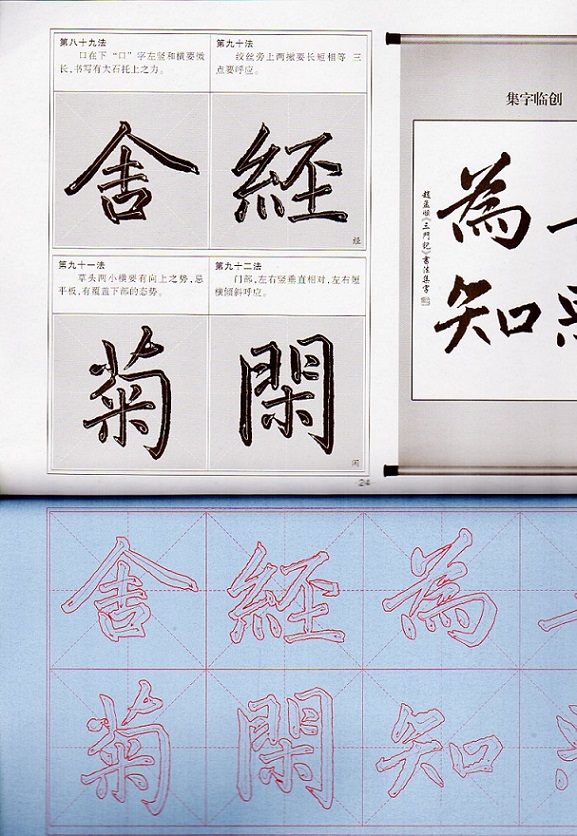 第八十九法
口在下“口”字左竖和横要微
长,书写有大石托上之力。
第九十法
绞丝旁上两撇要长短相等 三
点要呼应。
舍
經
经
第九十一法
草头两小横要有向上之势,忌
平板,有覆盖下部的态势。
第九十二法
门部,左右竖垂直相对,左右短
横倾斜呼应。
菊
閑
闲
24
集字临创
為
知
赵孟頫《三門記》書法集字
舍 經 為
菊 閑 知